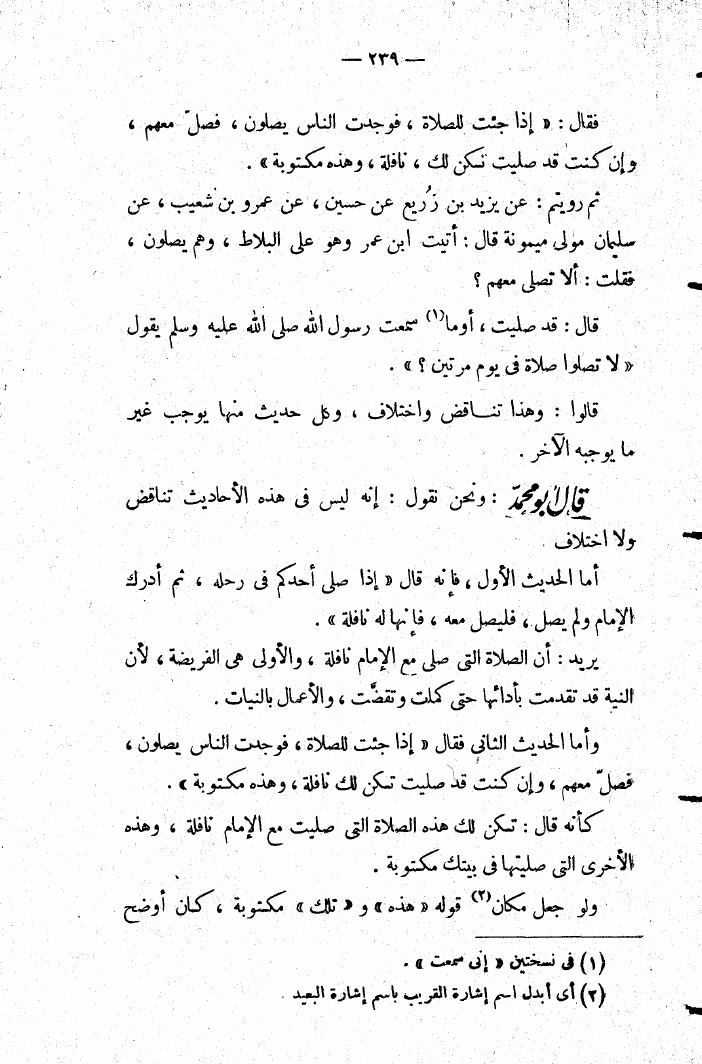 — ٢٣٩ —
فقال : « إذا جئت للصلاة ، فوجدت الناس يصلون ، فصلّ معهم ،
وإن كنت قد صليت تكن لك ، نافلة ، وهذه مكتوبة » .
ثم رويتم : عن يزيد بن زُريع عن حسين ، عن عمرو بن شعيب ، عن
سليمان مولى ميمونة قال : أتيت ابن عمر وهو على البلاط ، وهم يصلون ،
فقلت : ألا تصلى معهم ؟
قال : قد صليت ، أوما(١) سمعت رسول الله صلى الله عليه وسلم يقول
« لا تصلوا صلاة فى يوم مرتين ؟ » .
قالوا : وهذا تنـاقض واختلاف ، وكل حديث منها يوجب غير
ما يوجبه الآخر .
قال أبو محمد : ونحن نقول : إنه ليس فى هذه الأحاديث تناقض
ولا اختلاف .
أما الحديث الأول ، فإنه قال « إذا صلى أحدكم فى رحله ، ثم أدرك
الإمام ولم يصل ، فليصل معه ، فإنها له نافلة » .
يريد : أن الصلاة التى صلى مع الإمام نافلة ، والأولى هى الفريضة ، لأن
النية قد تقدمت بأدائها حتى كملت وتقضَّت ، والأعمال بالنيات .
وأما الحديث الثانى فقال « إذا جئت للصلاة ، فوجدت الناس يصلون ،
فصلّ معهم ، وإن كنت قد صليت تكن لك نافلة ، وهذه مكتوبة » .
كأنه قال : تكن لك هذه الصلاة التى صليت مع الإمام نافلة ، وهذه
الأخرى التى صليتها فى بيتك مكتوبة .
ولو جعل مكان(٢) قوله « هذه » و « تلك » مكتوبة ، كان أوضح
(١) فى نسختين « إنى سمعت » .
(٢) أى أبدل اسم إشارة القريب باسم إشارة البعيد .